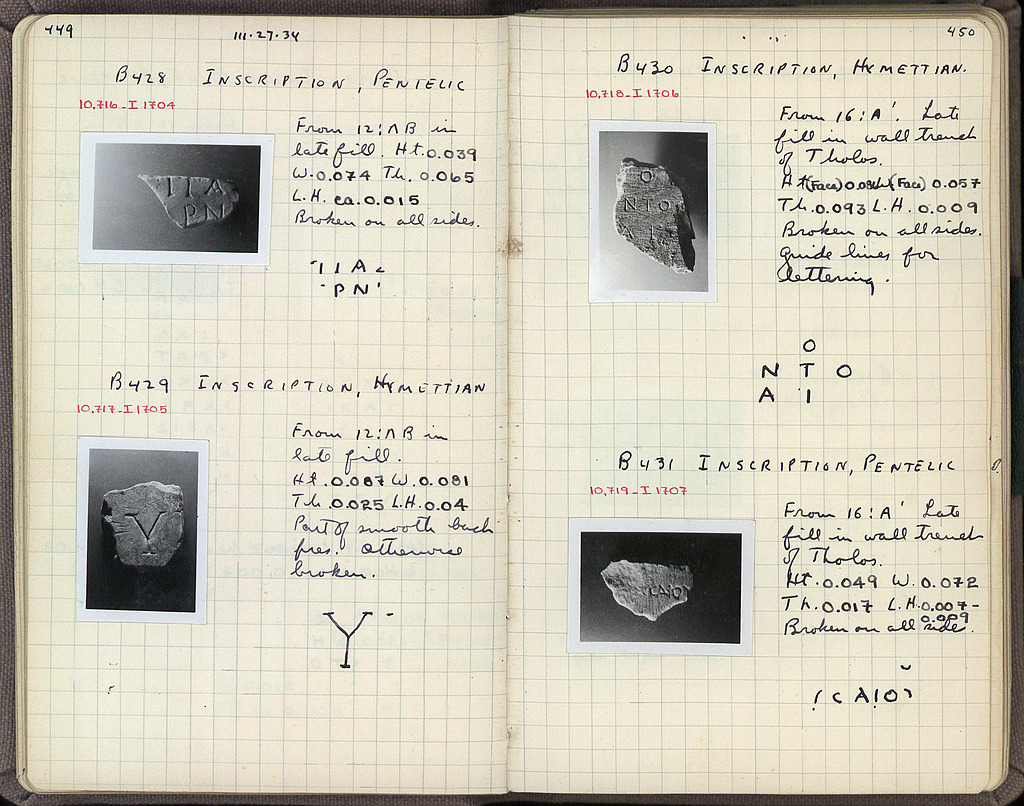 449
111·27·34
B428 INSCRIPTION, PENTELIC
10,716-I 1704
From 12:ΛB in
late fill. Ht. 0.039
W. 0.074 Th. 0.065
L.H. ca. 0.015
Broken on all sides.
ΙΙΑ
ΡΝ
B429 INSCRIPTION, HYMETTIAN
10,717-I 1705
From 12:ΛB in
late fill.
Ht. 0.087 W. 0.081
Th. 0.025 L.H. 0.04
Part of smooth back
pres. otherwise
broken.
Υ
450
B430 INSCRIPTION, HYMETTIAN.
10,718-I 1706
From 16:A'. Late
fill in wall trench
of Tholos.
Ht (Face) (Face) 0.057
Th. 0.093 L.H. 0.009
Broken on all sides.
guide lines for
lettering.
Ο
Ν Τ Ο
Α Ι
B431 INSCRIPTION, PENTELIC
10,719-I 1707
From 16:A' Late
fill in wall trench
of Tholos.
Ht. 0.049 W. 0.072
Th. 0.017 L.H. 0.007-
0.009
Broken on all side.
C Α Ι Ο